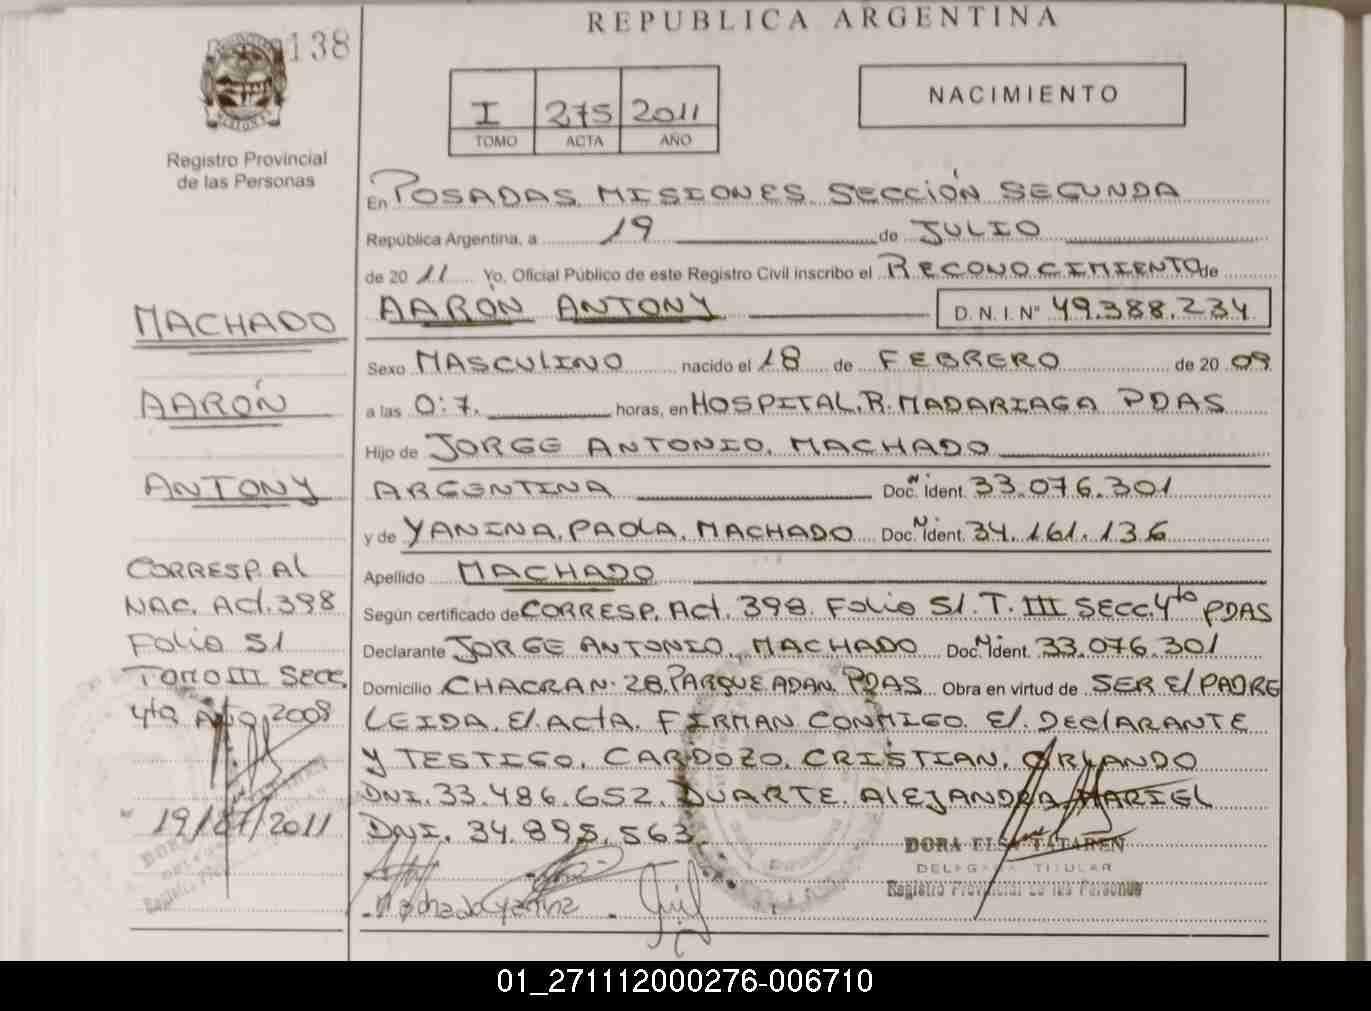 REPUBLICA ARGENTINA
138
I 275 2011
TOMO ACTA AÑO
NACIMIENTO
Registro Provincial
de las Personas
En POSADAS MISIONES SECCIÓN SEGUNDA
República Argentina, a 19 de JULIO
de 2011 Yo, Oficial Público de este Registro Civil inscribo el RECONOCIMIENTO de
AARÓN ANTONY D.N.I. Nº 49.388.234
Sexo MASCULINO nacido el 18 de FEBRERO de 2009
a las 0:7. horas, en HOSPITAL.R.MADARIAGA PDAS
Hijo de JORGE ANTONIO. MACHADO
ARGENTINA Doc. Ident. 33.076.301
y de YANINA.PAOLA.MACHADO Doc. Ident. 34.161.136
Apellido MACHADO
Según certificado de CORRESP. Act. 398. Folio 51. T. III SECC. 4ta PDAS
Declarante JORGE ANTONIO. MACHADO Doc. Ident. 33.076.301
Domicilio CHACRAN. 28.PARQUE ADAN. PDAS Obra en virtud de SER El PADRE
LEIDA. El. ActA. FIRMAN CONMIGO. El. DEClARANTE
Y TESTIGO. CARDOZO. CRISTIAN. ORLANDO
DNI. 33.486.652. DUARTE. ALEJANDRA MARIEL
DNI. 34.895.563.
MACHADO
AARÓN
ANTONY
CORRESP. Al
NAC. Act. 398
Folio 51
TOMO III SECC.
4ta Año 2009
19/07/2011
DORA ELSA TATAREN
DELEGADA TITULAR
Registro Provincial de las Personas
Machado Yanina
01_271112000276-006710